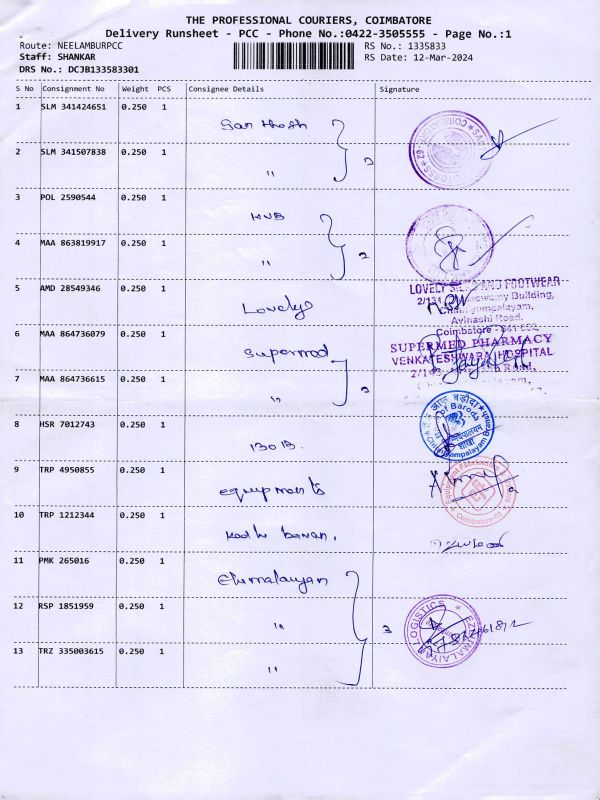 THE PROFESSIONAL COURIERS, COIMBATORE
Delivery Runsheet - PCC - Phone No.:0422-3505555 - Page No.:1
Route: NEELAMBURPCC RS No.: 1335833
Staff: SHANKAR RS Date: 12-Mar-2024
DRS No.: DCJB133583301
S No Consignment No Weight PCS Consignee Details Signature
1 SLM 341424651 0.250 1 Santhosh
2 SLM 341507838 0.250 1 " 2
3 POL 2590544 0.250 1 HUB
4 MAA 863819917 0.250 1 " 2
5 AMD 28549346 0.250 1 Lovelys LOVELY SILKS AND FOOTWEAR
Building,
Avinashi Road,
Coimbatore - 641 062
6 MAA 864736079 0.250 1 Supermed SUPERMED PHARMACY
VENKATESHWARA HOSPITAL
7 MAA 864736615 0.250 1 " 2
8 HSR 7012743 0.250 1 BOB. of Baroda
शाखा
9 TRP 4950855 0.250 1 equipments Coimbatore-62
10 TRP 1212344 0.250 1
11 PMK 265016 0.250 1
12 RSP 1851959 0.250 1 " 3 EZHIMALAIYAN LOGISTICS
13 TRZ 335003615 0.250 1 "